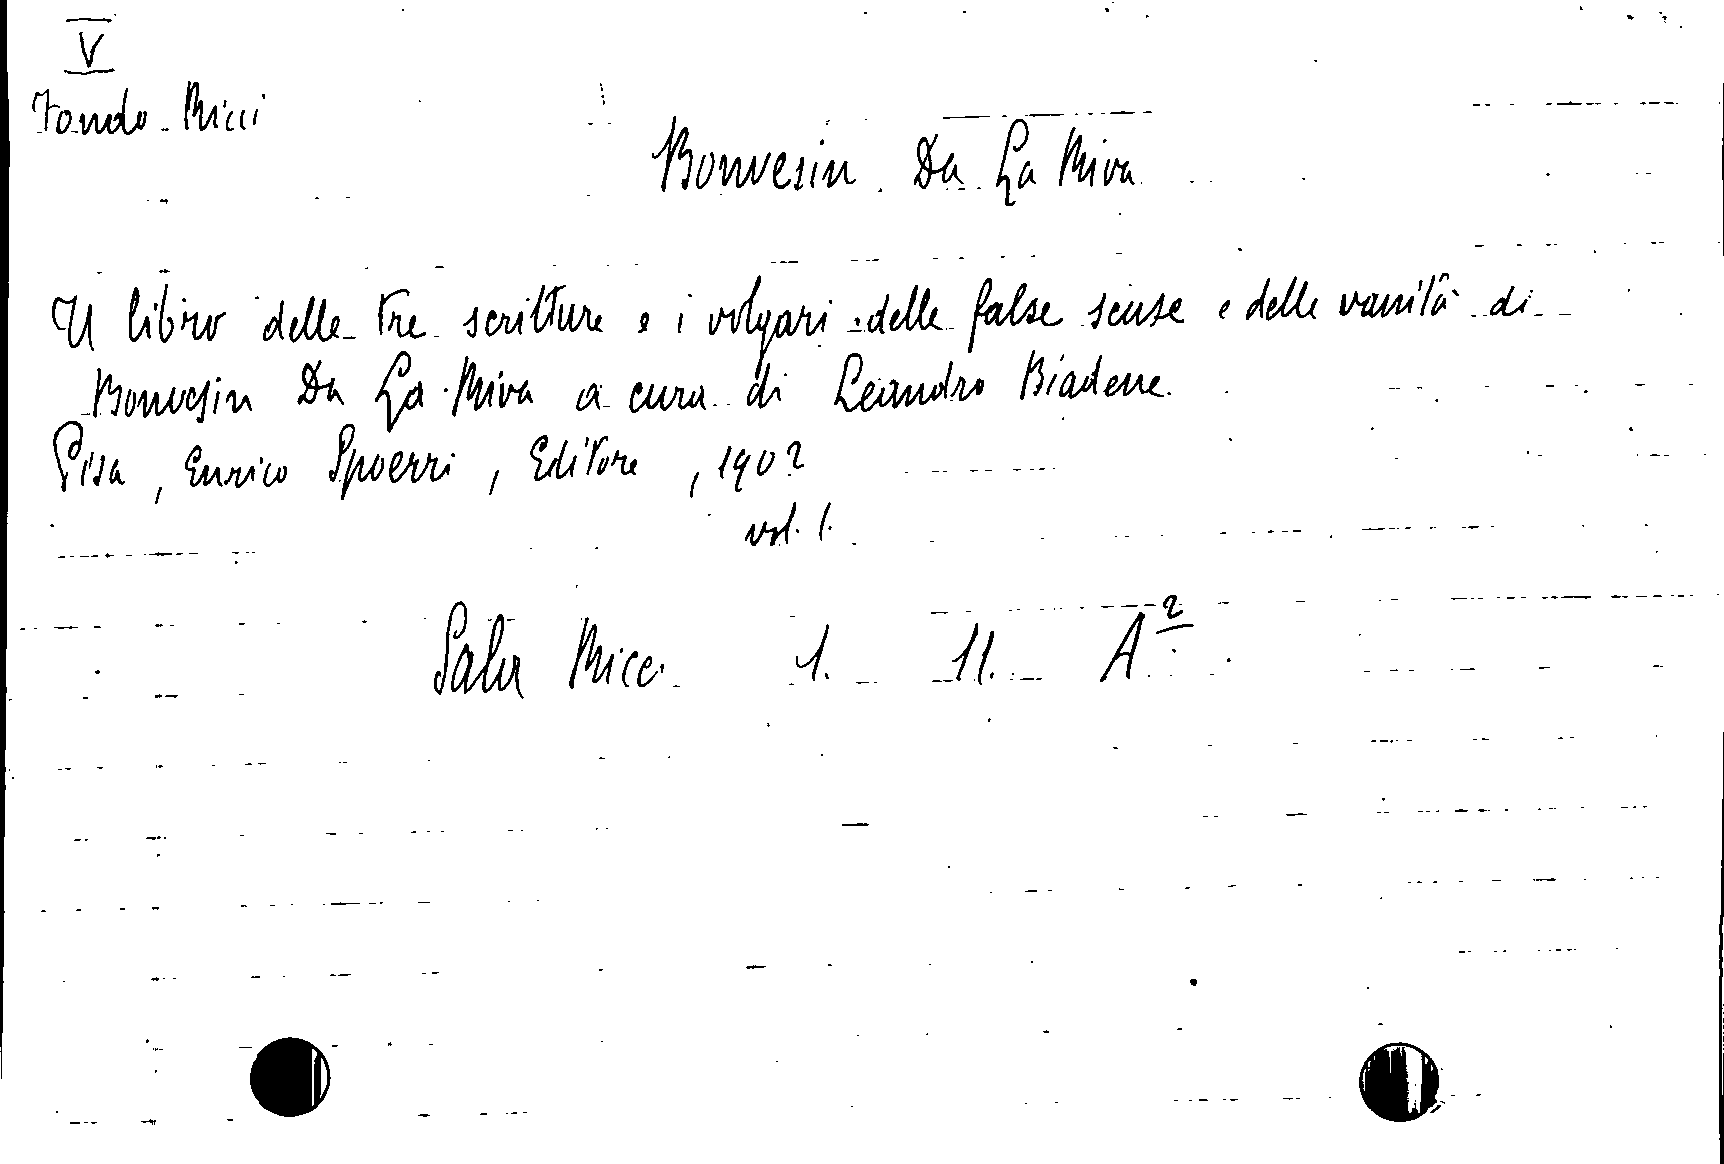 V
Fondo Ricci
Bonvesin Da La Riva
Il libro delle tre scritture e i volgari delle false scuse e delle vanità di
Bonvesin Da La Riva a cura di Leandro Biadene.
Pisa, Enrico Spoerri, Editore, 1902
vol. 1.
Sala Ricci 1. 11. A²